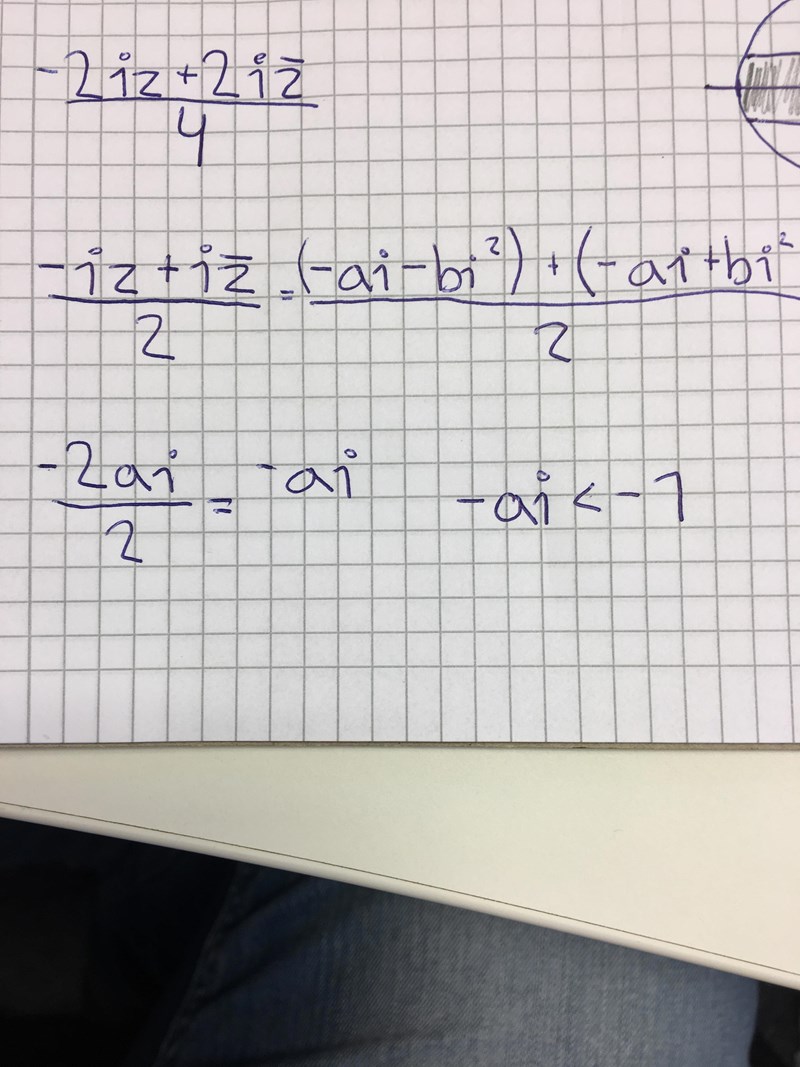 -2iz+2iz̄
4
-iz+iz̄ = (-ai-bi²) + (-ai+bi²
2 2
-2ai = -ai -ai < -1
2